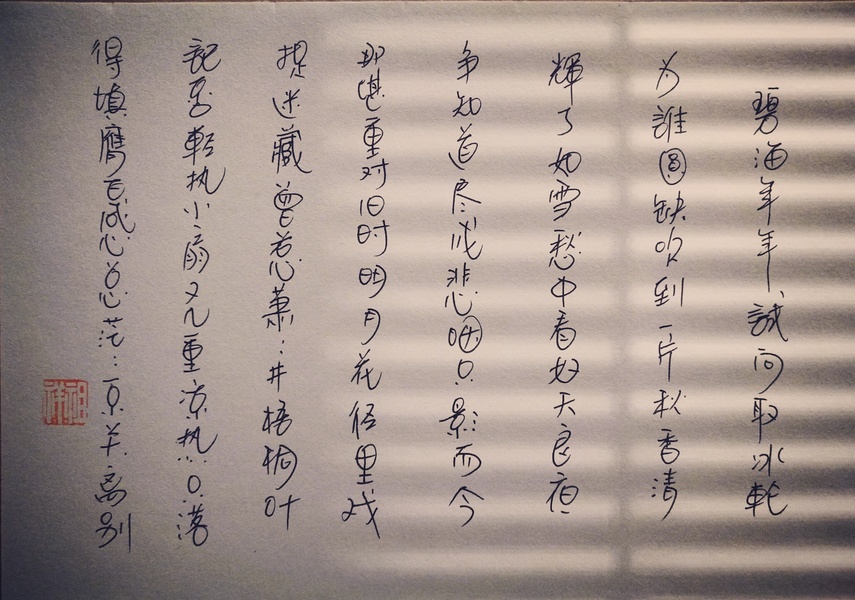 碧海年年、試问取冰轮
为誰圆缺吹到一片秋香清
輝了如雪愁中看好天良夜
争知道尽成悲咽只影而今
那堪重对旧时明月花径里戏
捉迷藏曾惹萧：井梧桐叶
記否轻执小扇又几重凉热只落
得填膺百感总茫：不关离别